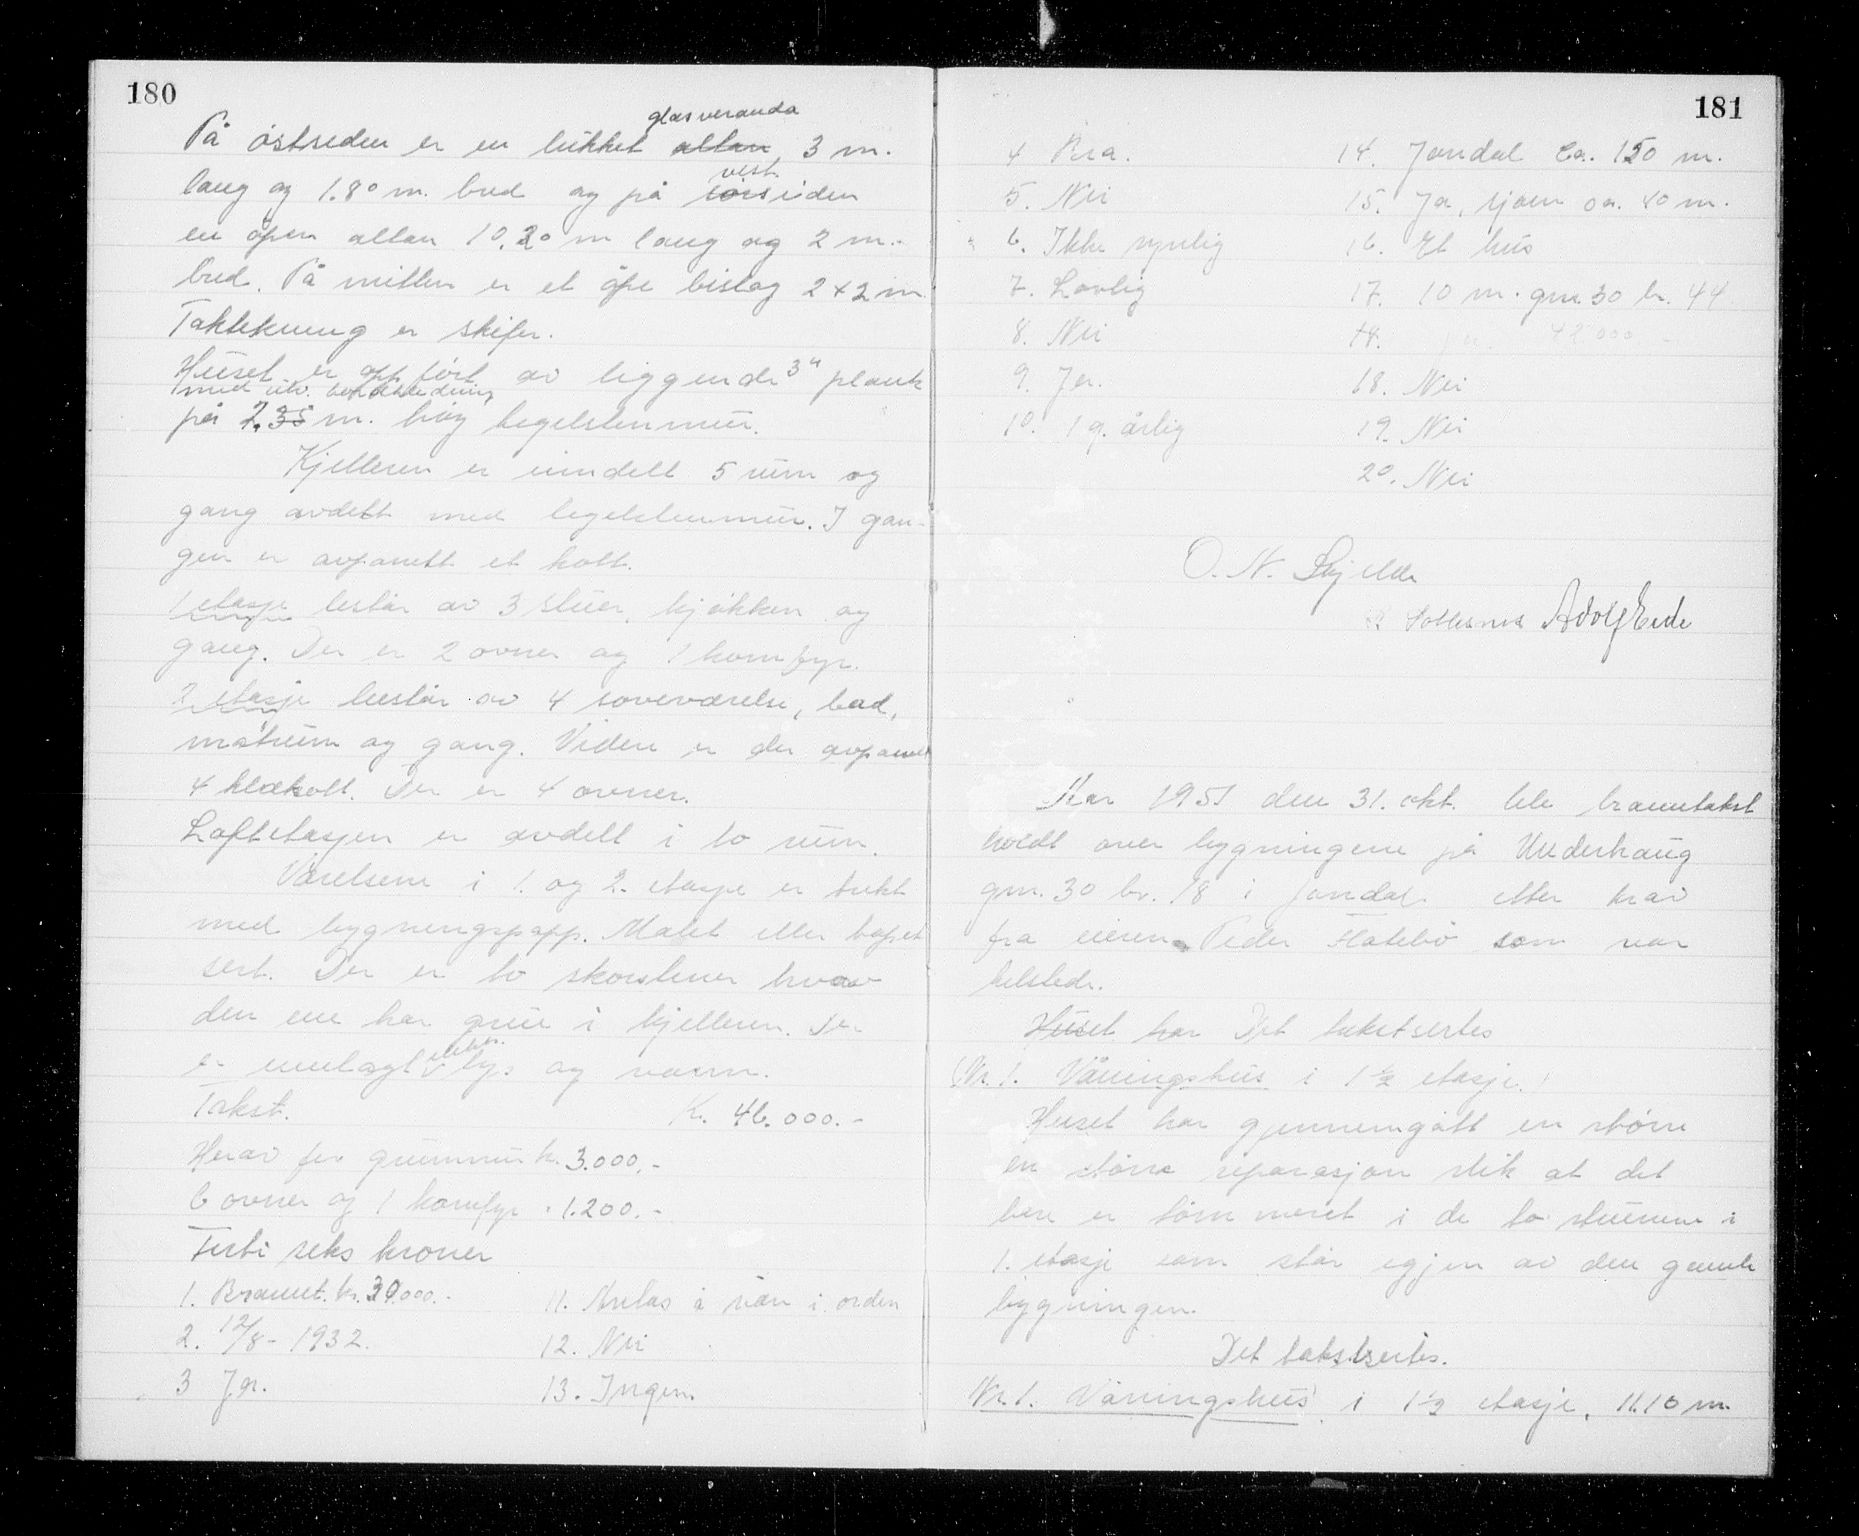 180
glasveranda
På østsiden er en lukket altan 3 m.
vest
lang og 1.80 m. bred og på sørsiden
en åpen altan 10.20 m lang og 2 m.
bred. På midten er et åpe bislag 2 x 2 m
Taktekning er skifer.
Huset er oppført av liggende 3" plank
med utv. bordkledning
på 2.35 m. høg tegelstenmur.
Kjelleren er inndelt 5 rum og
gang avdelt med tegelstenmur. I gan-
gen er avpanelt et kott.
1 etasje består av 3 stuer, kjøkken og
gang. Der er 2 ovner og 1 komfyr.
2 etasje består av 4 soveværelse, bad,
matrum og gang. Videre er der avpanelt
4 klækott. Der er 4 ovner.
Loftetasjen er avdelt i to rum.
Værelsene i 1. og 2. etasje er trekt
med bygningspapp. Malet eller tapet
sert. Der er to skorstener hvorav
den ene har grue i kjelleren. Der
er innlagt elektr. lys og varm.
Takst. Kr. 46.000.-
Herav for grunnmur kr. 3.000.-
6 ovner og 1 komfyr " 1.200.-
Førti seks kroner
1. Brannt. kr. 30.000.-
11. Antas å være i orden
2. 12/8 - 1932.
12. Nei
3 Ja.
13. Ingen
181
4 Bra.
14. Jondal ca. 150 m.
5. Nei
15. Ja, sjøen ca. 40 m.
6. Ikke synlig
16. Et hus
7. Lovlig
17. 10 m. gnr. 30 br. 44
8. Nei
18. kr. 42.000 -
9. Ja.
18. Nei
10. 1 g. årlig
19. Nei
20. Nei
O. N. Skjelde
S Solesnes Adolf Eide
Kar 1951 den 31. okt. ble branntakst
holdt over bygningene på Underhaug
gnr. 30 br. 18 i Jondal etter krav
fra eieren Peder Flatebø som var
tilstede.
Huset har Det takstsertes
(Nr. 1. Våningshus i 1 ½ etasje.)
Huset har gjennemgått en større
en større reparasjon slik at det
bare er tømmeret i de to stuerne i
1. etasje som står igjen av den gamle
bygningen.
Det takstsertes.
Nr. 1. Våningshus i 1 ½ etasje, 11.10 m.